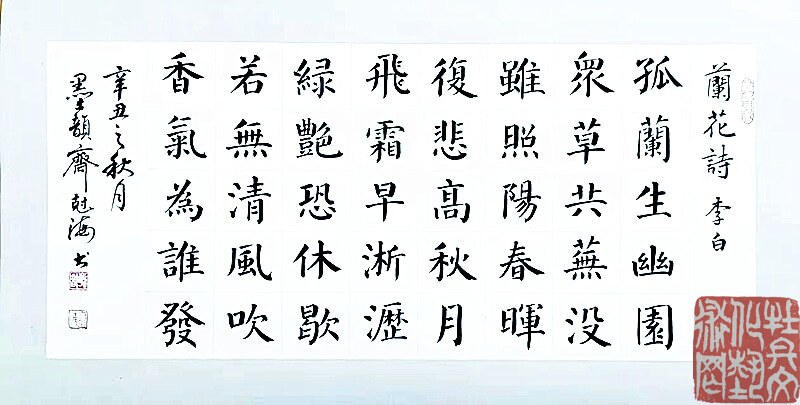 蘭花詩 李白
孤蘭生幽園
衆草共蕪没
雖照陽春暉
復悲高秋月
飛霜早淅瀝
緑艷恐休歇
若無清風吹
香氣為誰發
辛丑之秋月
墨韻齋 海书